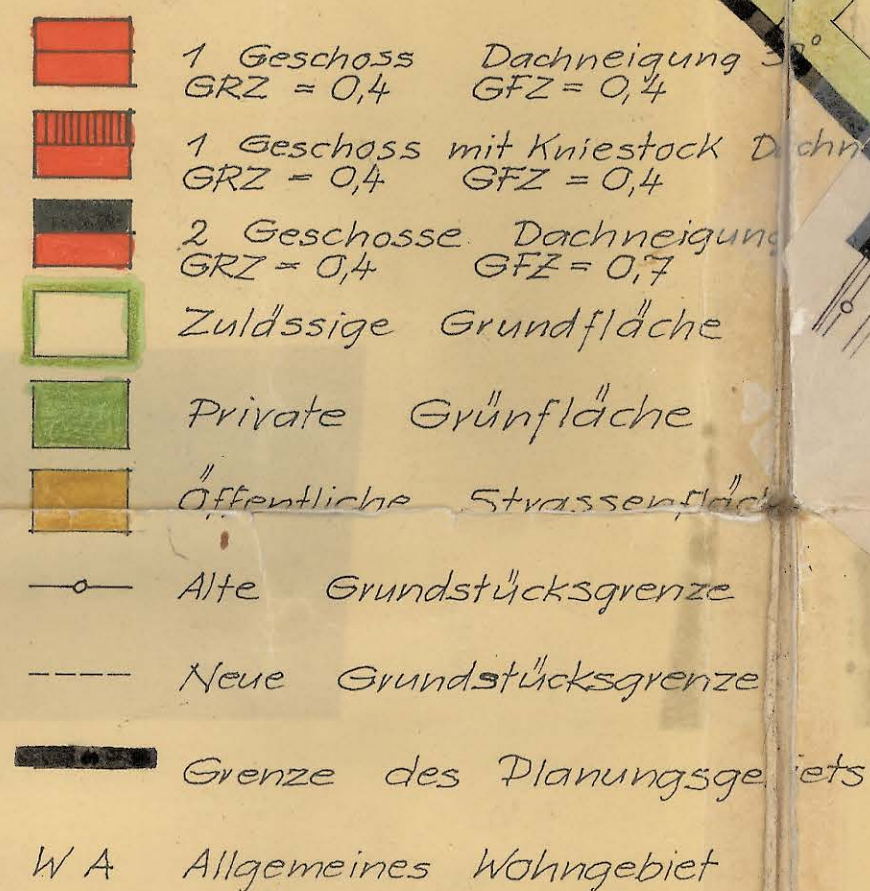 1 Geschoss Dachneigung
GRZ = 0,4 GFZ = 0,4
1 Geschoss mit Kniestock
GRZ = 0,4 GFZ = 0,4
2 Geschosse Dachneigung
GRZ = 0,4 GFZ = 0,7
Zulässige Grundfläche
Private Grünfläche
Öffentliche
Alte Grundstücksgrenze
Neue Grundstücksgrenze
Grenze des
WA Allgemeines Wohngebiet